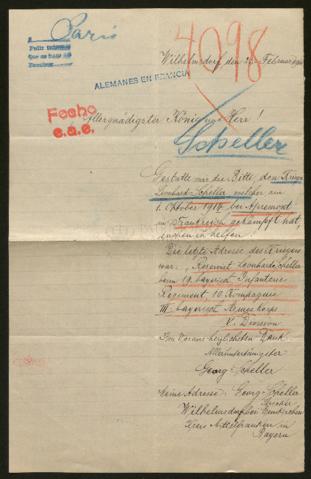 Paris
Pedir informes
4098
Wilhelmsdorf den 26. Februar
ALEMANES EN FRANCIA
Fecho
e.a.e.
Allergnädigster König und Herr!
Scheller
Gestatte mir die Bitte, den Krieger
Leonhard Scheller welcher am
1. Oktober 1914 bei Apremont
in Frankreich gekämpft hat,
zu helfen.
Die letzte Adresse des Kriegers
war: Reservist Leonhard Scheller
beim 19. bayerisch Infanterie
Regiment, 10. Kompagnie
III. bayerisch Armeekorps
V. Division
Im Voraus herzlichsten Dank
Alleruntertänigster
Georg Scheller
Meine Adresse: Georg Scheller
Wilhelmsdorf bei Emskirchen
Kreis Mittelfranken in
Bayern